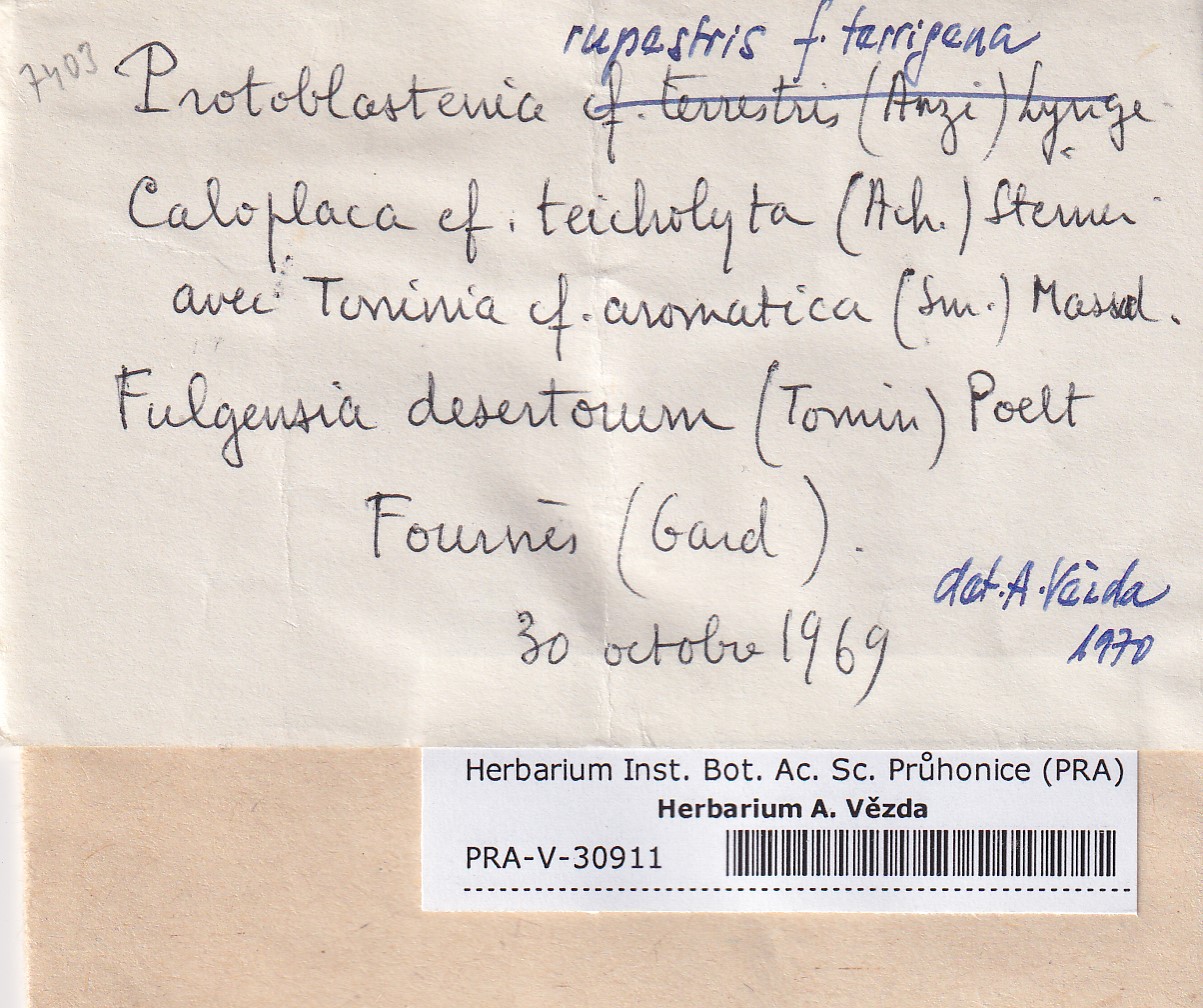 rupestris f. terrigena
7403
Protoblastenia cf. terrestris (Anzi) Lynge
Caloplaca cf. teicholyta (Ach.) Steiner
avec Toninia cf. aromatica (Sm.) Massal.
Fulgensia desertorum (Tomin) Poelt
Fournès (Gard).
det. A. Vězda
30 octobre 1969
1970
Herbarium Inst. Bot. Ac. Sc. Průhonice (PRA)
Herbarium A. Vězda
PRA-V-30911